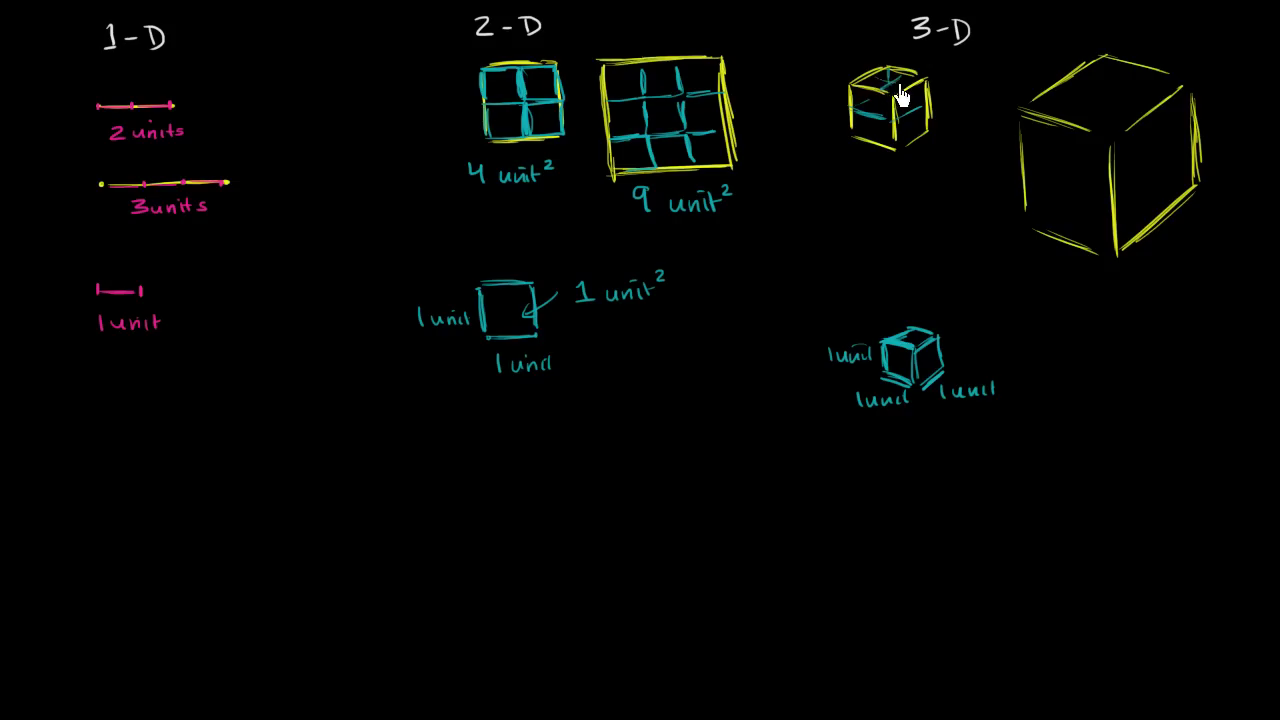 1-D
2 units
3 units
1 unit
2-D
4 unit²
9 unit²
1 unit
1 unit²
1 unit
3-D
1 unit
1 unit
1 unit